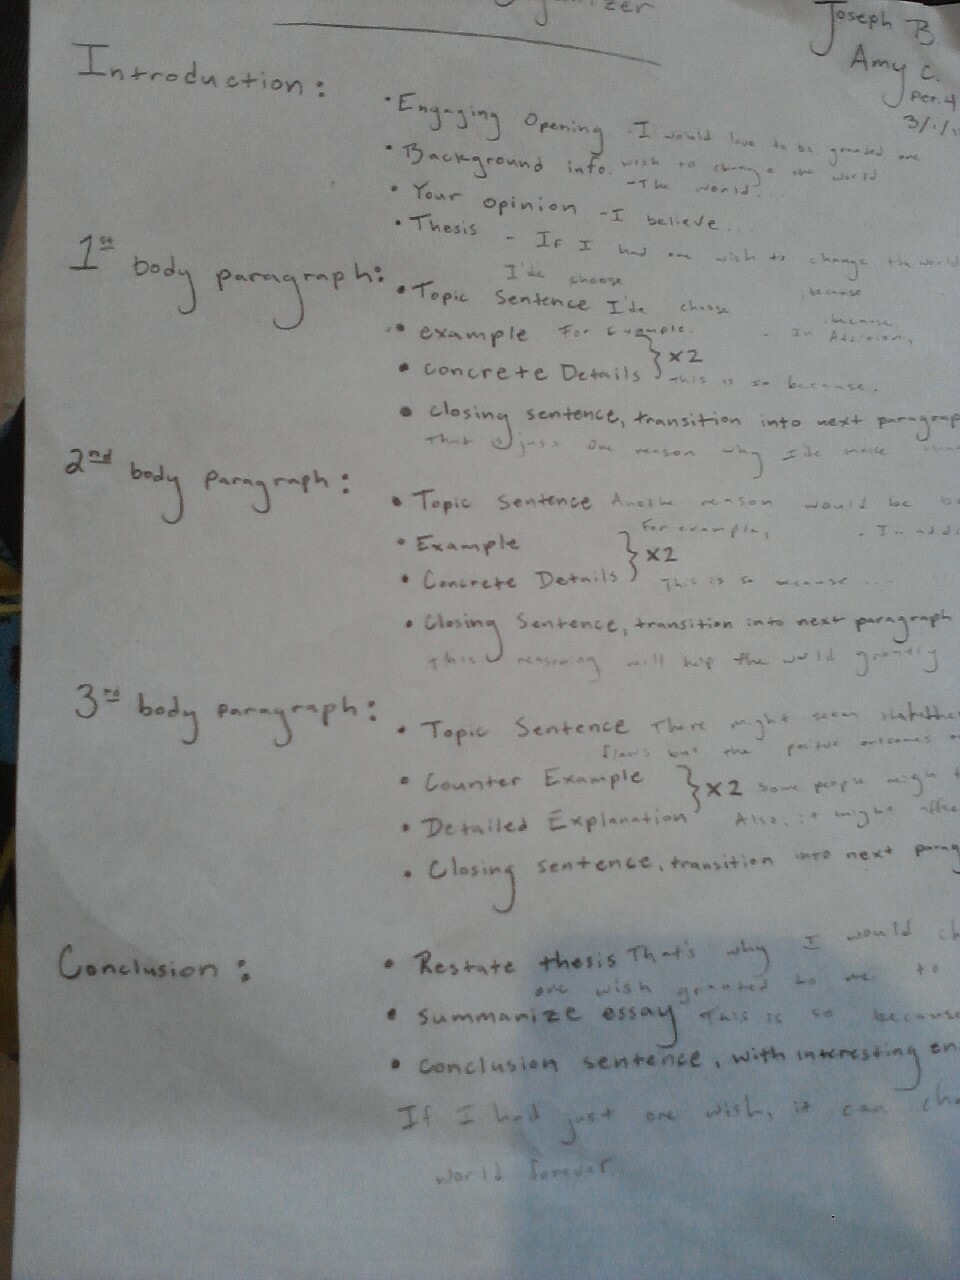 Organizer
Joseph B.
Amy C.
Per. 4
3/1/1
Introduction:
• Engaging Opening - I would love to be granted one
wish to change the world
• Background info. - The world...
• Your opinion - I believe...
• Thesis - If I had one wish to change the world
I'de choose because
1st body paragraph:
• Topic Sentence I'de choose because
• example For Example. - In Addition,
• Concrete Details } x2 This is so because.
• closing sentence, transition into next paragrap
That is just one reason why I'de make
2nd body paragraph:
• Topic Sentence Another reason would be be
• Example For example, - In add
• Concrete Details } x2 This is so because....
• Closing Sentence, transition into next paragraph
This reasoning will help the world greatly
3rd body paragraph:
• Topic Sentence There might seem
flaws but the outcomes
• Counter Example } x2 Some people might
• Detailed Explanation Also, it might affe
• Closing sentence, transition into next parag
Conclusion:
• Restate thesis That's why I would ch
one wish granted to me to
• summarize essay This is so because
• conclusion sentence, with interesting en
If I had just one wish, it can cha
world forever